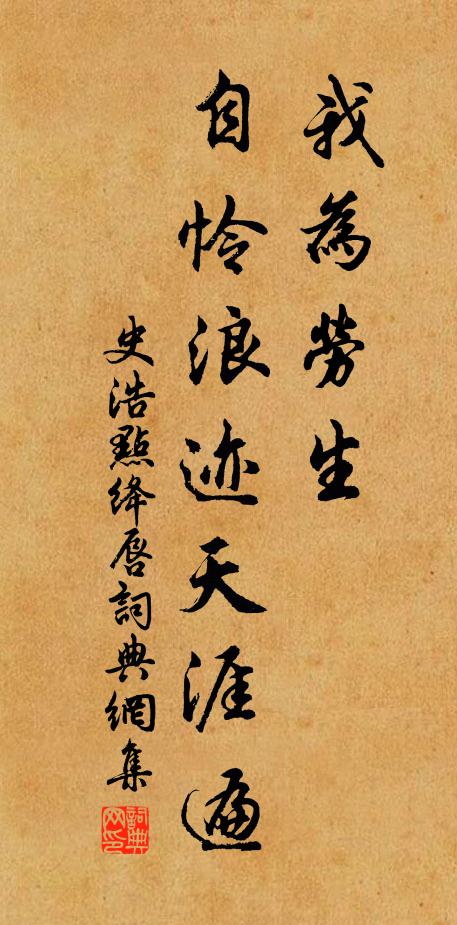 我為勞生
自怜浪迹天涯遍
史浩點绛唇詞典網集
詞典网印